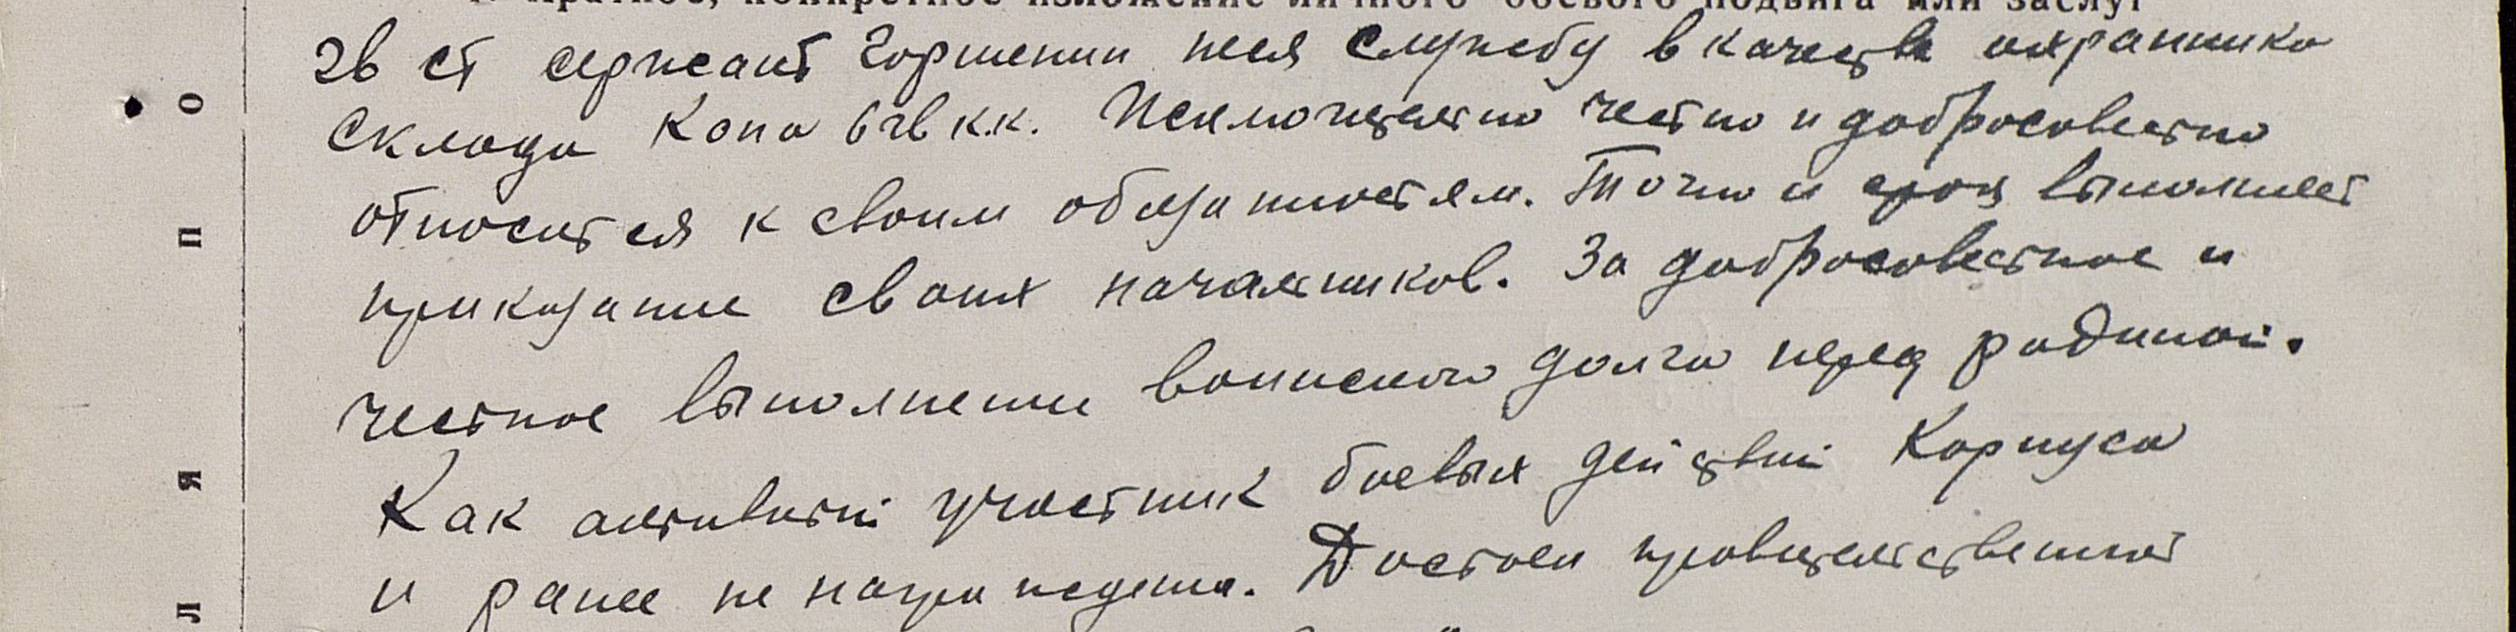 I. Краткое, конкретное изложение личного боевого подвига или заслуг
Гв ст сержант Горшенин неся службу в качестве охранника
склада Копа 6 гв к.к. Исключительно честно и добросовестно
относится к своим обязаностям. Точно и срок выполняет
приказание своих начальников. За добросовестное и
честное выполнение воинского долга перед родиной.
Как активный участник боевых действий Корпуса
и ранее не награждена. Достоен правительственной
о
п
я
л